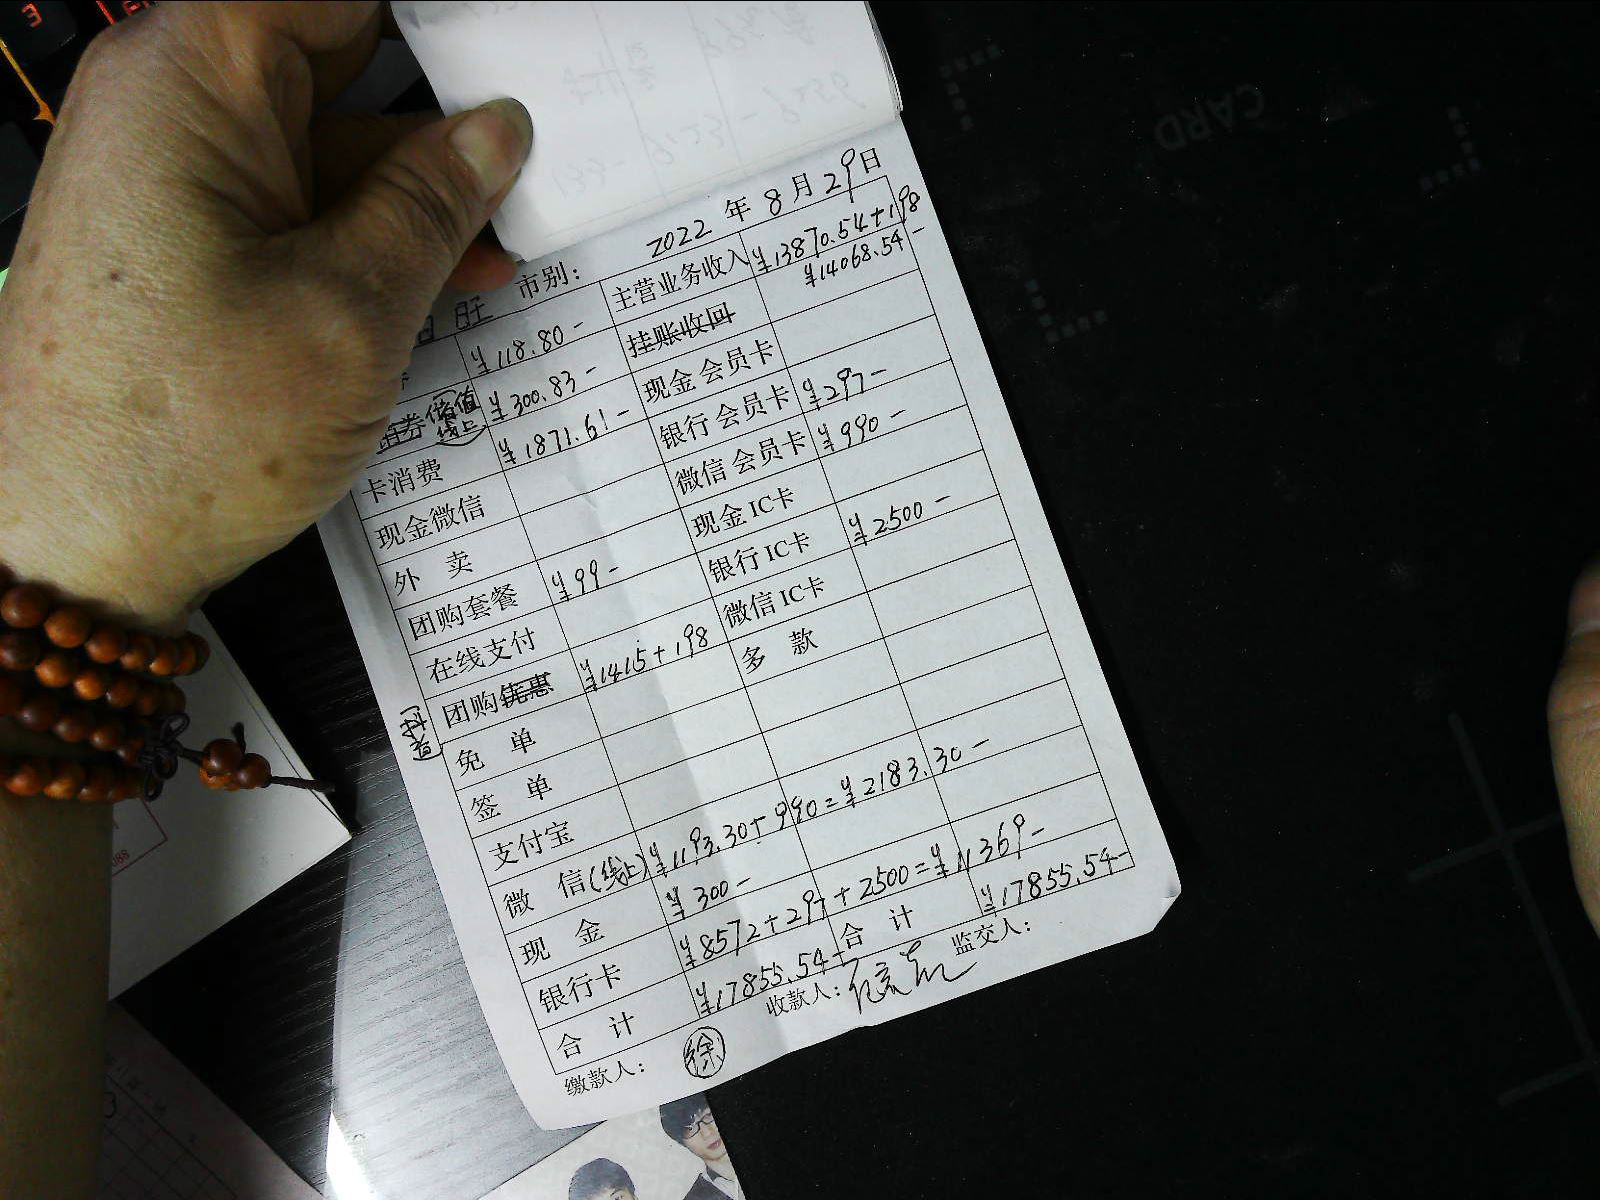 CARD
2022 年 8 月 29 日
旺 市别:
¥118.80- 主营业务收入 ¥13870.54+198
¥14068.54-
储值 线上 ¥300.83- 挂账收回
卡消费 ¥1871.61- 现金 会员卡
现金微信 银行 会员卡 ¥297-
外 卖 微信 会员卡 ¥990-
团购套餐 ¥99- 现金 IC卡
在线支付 银行 IC卡 ¥2500-
团购优惠 ¥1415+198 微信 IC卡
免 单 多 款
签 单
支付宝
微 信(线上) ¥1193.30+990=¥2183.30-
现 金 ¥300-
银行卡 ¥8572+297+2500=¥11369-
合 计 ¥17855.54- 合 计 ¥17855.54-
缴款人: 徐 收款人: 监交人: